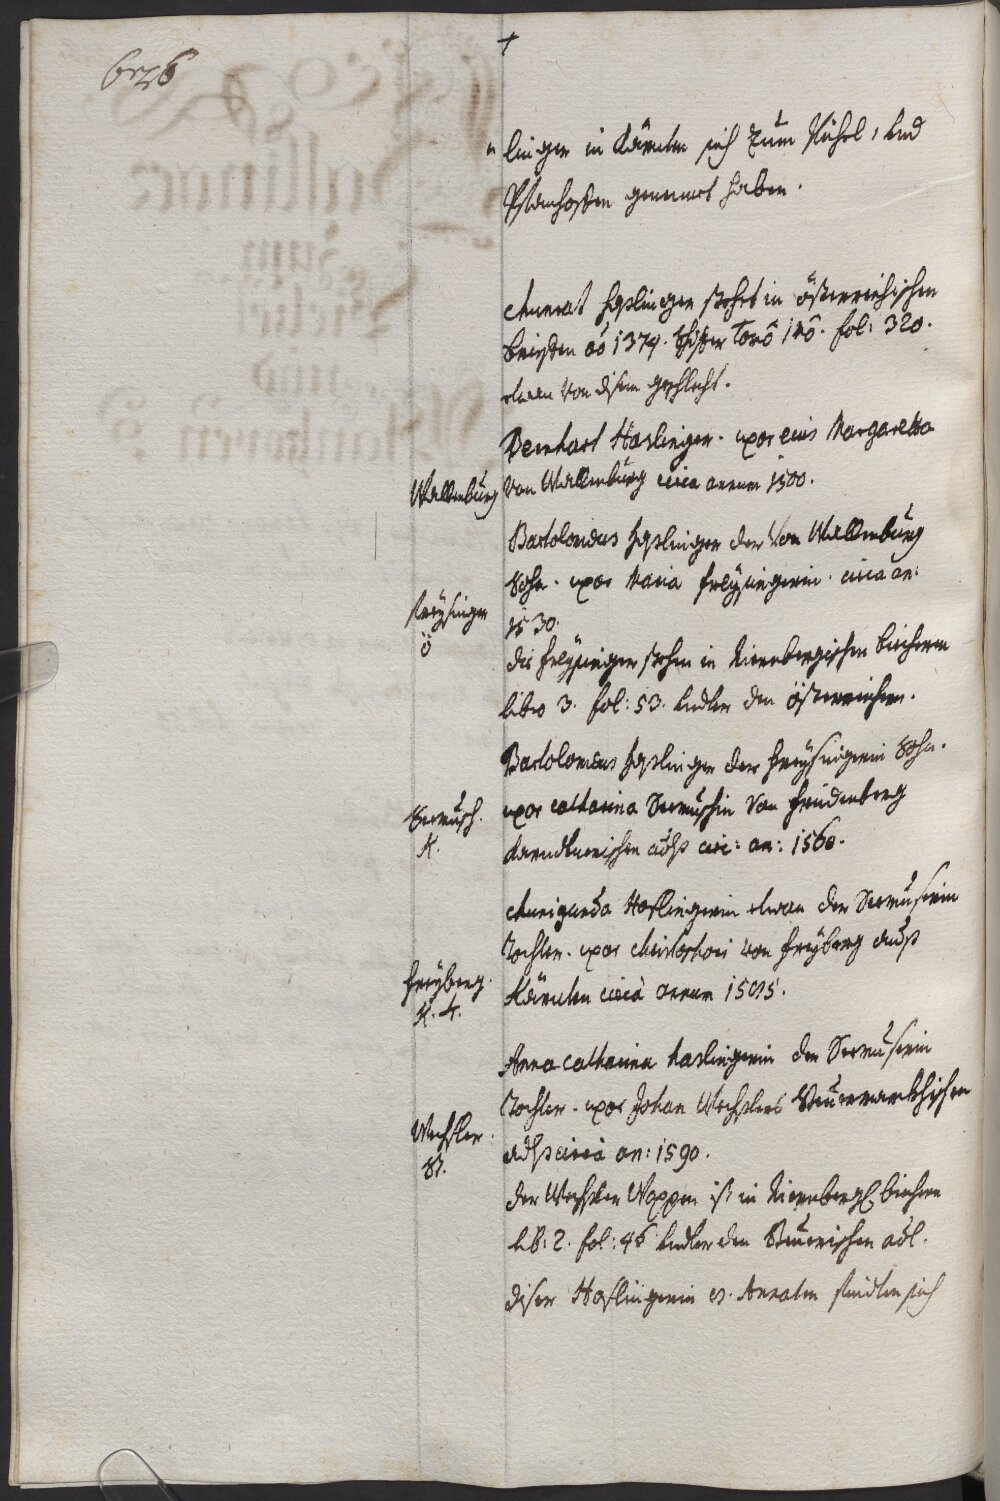 +
lingen in Kärnten sich zum Pichel, und
Pflanhoffen genennet haben.
Chunrat Haslinger stehet in österreichischen
brieffen aō 1374. Tomō 1mō. fol: 320.
etwan von disem geschlecht.
Bernhart Haslinger. uxor eius Margaretta
von Wallenburg circa annum 1500.
Wallenburg
Bartolomæus Haslinger der von Wallenburg
Sohn. uxor Maria Freysingerin. circa an:
1530.
Freysinger
ö
die Freysinger stehen in Niernbergischen biechern
libro 3. fol: 53. under den österreichern.
Bartolomæus Haslinger der Freysingerin Sohn.
uxor Catharina Sermuschin von Freudenberg
Karndtnerischen adlß circ: an: 1560.
Sermusch.
K.
Chunigunda Haslingerin etwan der Sermuschin
Tochter. uxor Christophori von Freyberg auß
Kärnten circa annum 1585.
Freyberg.
K. 4.
Anna Catharina Haslingerin der Sermuschin
Tochter. uxor Johan Wechslers Steuermarkhischen
adlß circa an: 1590.
Wechsler.
St.
der Wechsler Wappen ist in Niernberg: biechern
lib: 2. fol: 46 under den Steuerischen adl.
diser Haslingerin 8. Annaten findten sich